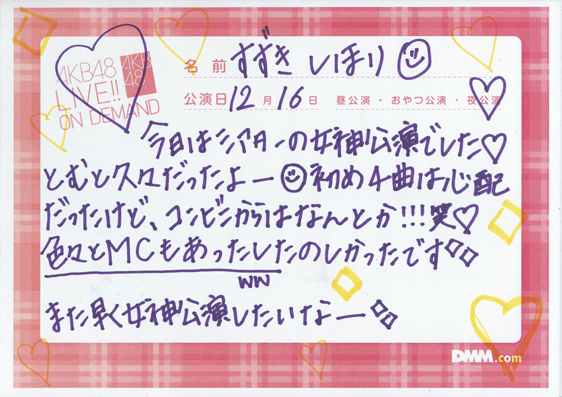 AKB48
LIVE!!
ON DEMAND
AKB
48
名前 すずき しほり
公演日 12月16日 昼公演・おやつ公演・夜公演
今日はシアターの女神公演でした♡
とむと久々だったよー 初め4曲は心配
だったけど、コンビニからはなんとか!!!笑♡
色々とMCもあったしたのしかったです
ww
また早く女神公演したいなー
DMM.com